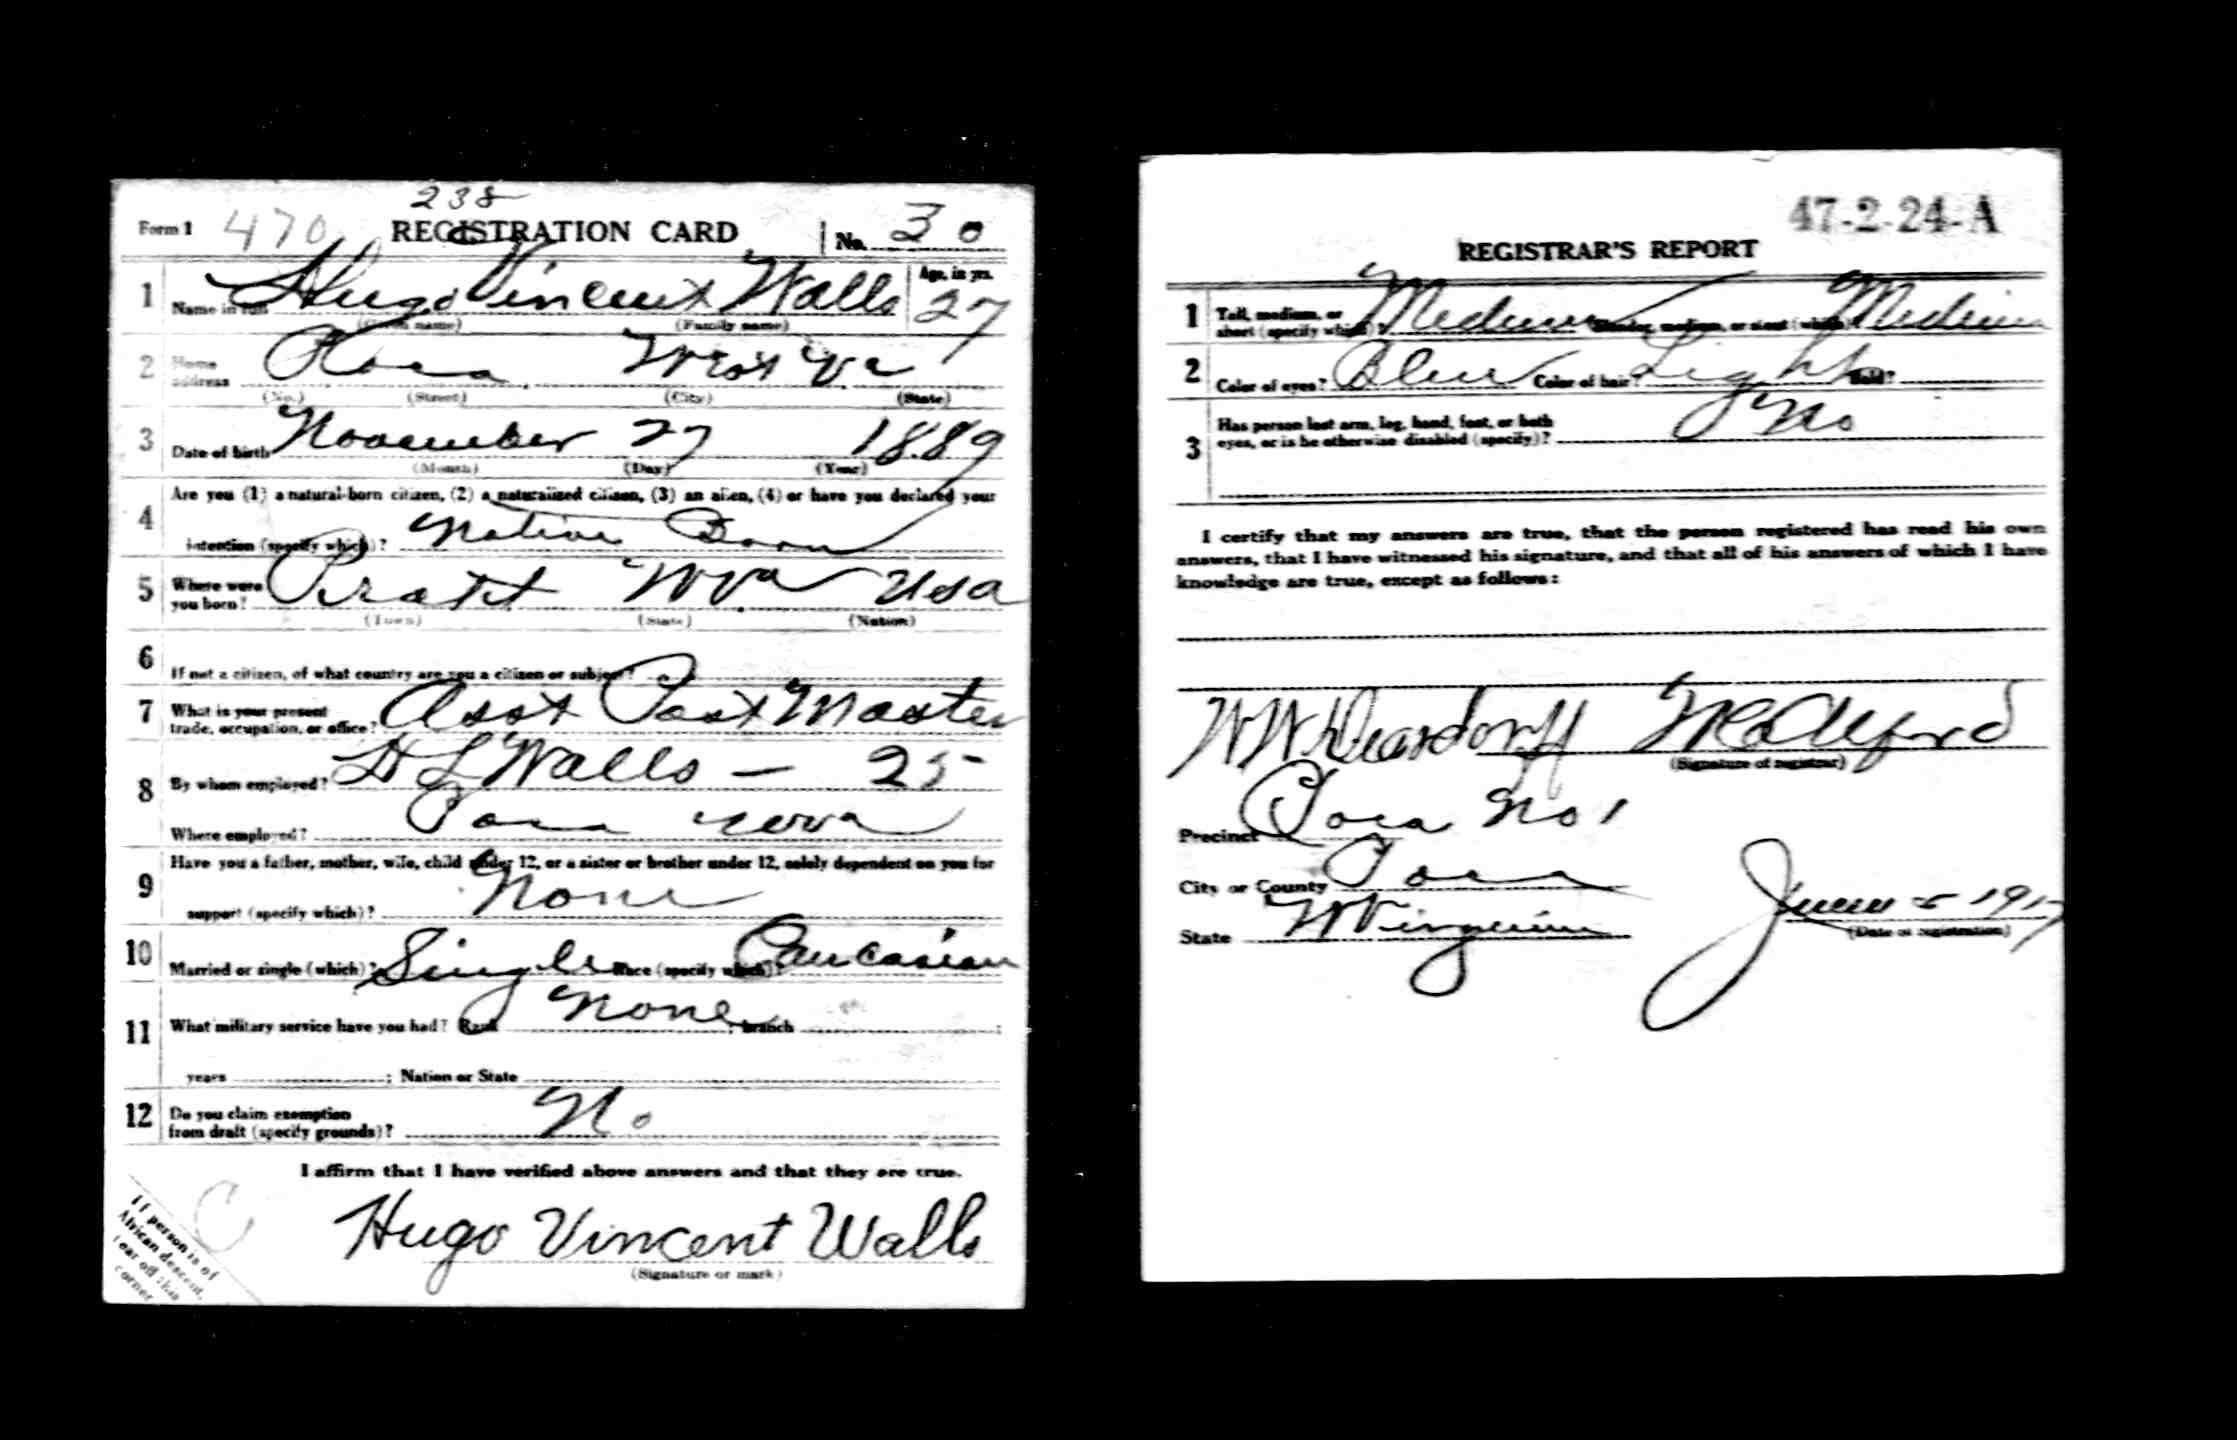 238
Form 1 470 REGISTRATION CARD No. 30
1 Name in full Hugo Vincent Walls Age, in yrs. 27
(Given name) (Family name)
2 Home address Poca West Va
(No.) (Street) (City) (State)
3 Date of birth November 27 1889
(Month) (Day) (Year)
4 Are you (1) a natural-born citizen, (2) a naturalized citizen, (3) an alien, (4) or have you declared your
intention (specify which)? Native Born
5 Where were you born? Pratt W Va Usa
(Town) (State) (Nation)
6 If not a citizen, of what country are you a citizen or subject?
7 What is your present trade, occupation, or office? Asst Post Master
8 By whom employed? H L Walls — 25
Where employed? Poca
9 Have you a father, mother, wife, child under 12, or a sister or brother under 12, solely dependent on you for
support (specify which)? None
10 Married or single (which)? Single Race (specify which)? Caucasian
11 What military service have you had? Rank None ; branch ;
years ; Nation or State
12 Do you claim exemption from draft (specify grounds)? No
I affirm that I have verified above answers and that they are true.
Hugo Vincent Walls
(Signature or mark)
If person is of
African descent,
tear off this
corner
C
47-2-24-A
REGISTRAR'S REPORT
1 Tall, medium, or short (specify which)? Medium Slender, medium, or stout (which)? Medium
2 Color of eyes? Blue Color of hair? Light Bald?
3 Has person lost arm, leg, hand, foot, or both
eyes, or is he otherwise disabled (specify)? No
I certify that my answers are true, that the person registered has read his own
answers, that I have witnessed his signature, and that all of his answers of which I have
knowledge are true, except as follows:
W W Deardorff
(Signature of registrar)
Precinct Poca No 1
City or County Poca
State W Virginia June 5 1917
(Date of registration)